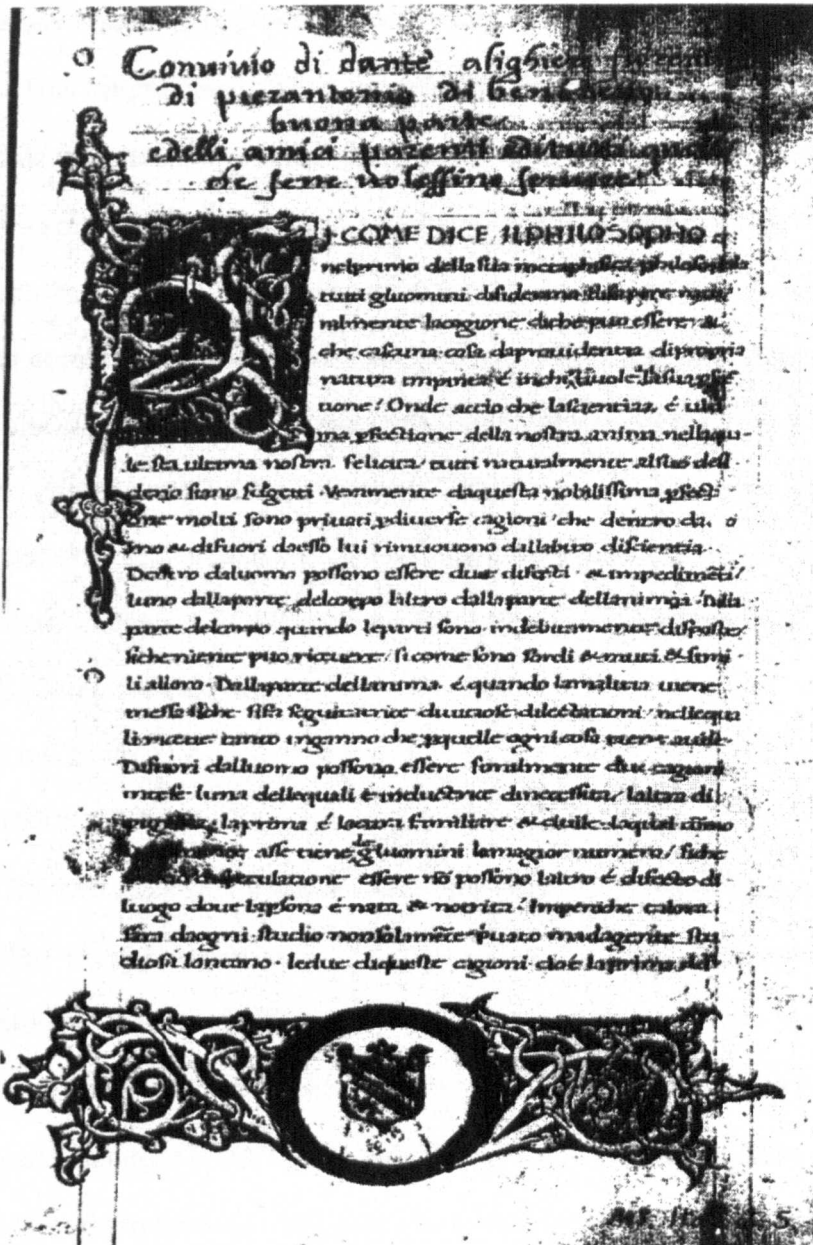 Conuiuio di dante alighieri
di pierantonio di
buona parte
edelli amici parenti
che sene uolessino seruire
I COME DICE ILPHILOSOPHO
nelprimo della sua metaphisica
tutti gluomini disiderano disapere
ralmente lacagione diche puo essere &
che ciascuna cosa daprouidentia dipropria
natura impinta é inchineuole alla sua pfe
tione! Onde accio che lascientia é ulti
ma pfectione della nostra anima nellaqu
le sta ultima nostra felicita tutti naturalmente alsuo desi
derio siano subgetti. Veramente daquesta nobilissima pfecti
one molti sono priuati pdiuerse cagioni che dentro da
mo & difuori daesso lui rimuouono dallabito discientia
Dentro daluomo possono essere due difecti & impedimēti /
luno dallaparte delcorpo laltro dallaparte dellanima. Dalla
parte delcorpo quando leparti sono indebitamente disposte /
siche niente puo riceuere / si come sono sordi & muti & simi
li alloro. Dallaparte dellanima é quando lamalitia uiene
inessa siche sifa seguitatrice diuitiose dilectationi nellequa
li riceue tanto inganno che pquelle ogni cosa tiene auile.
Difuori dalluomo possono essere similmente due cagioni
intese luna dellequali é inductrice dinecessita / laltra di
pigritia laprima é lacura familiare & ciuile laquale
asse tiene degluomini lamagior numero / siche
essere nō possono laltro é difecto di
luogo doue lapsona é nata & notrita! Imperoche talora
sara daogni studio nonsolamēte priuato madagente stu
diosa lontano. ledue diqueste cagioni cioé laprima dal